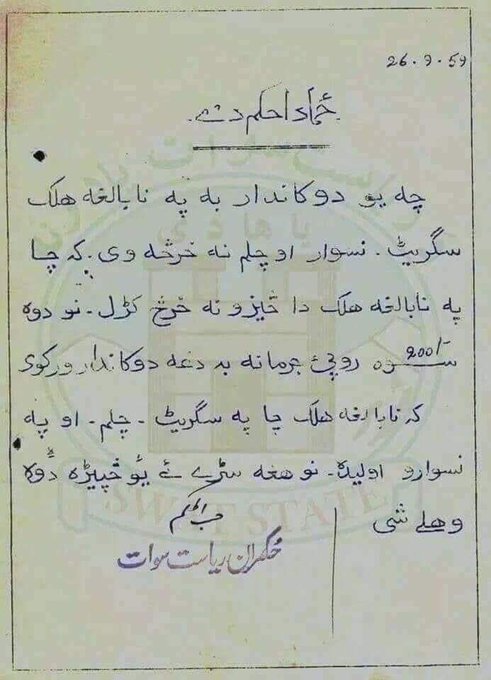 26.9.59
ځما دا حکم دے.
چه یو دوکاندار به په نابالغه هلک
سګریټ۔ نسوار او چلم نه خرڅه وی۔ که چا
په نابالغه هلک دا څیزونه خرڅ کړل۔ نو دوه
200/-
سوه روپئ جرمانه به دغه دوکاندار ورکوی
که نابالغه هلک چا په سګریټ۔ چلم۔ او په
نسوارو اولیده۔ نو هغه سړے ئے یو څپیړه دوه
وهلے شی
حکمران ریاست سوات
SWAT STATE